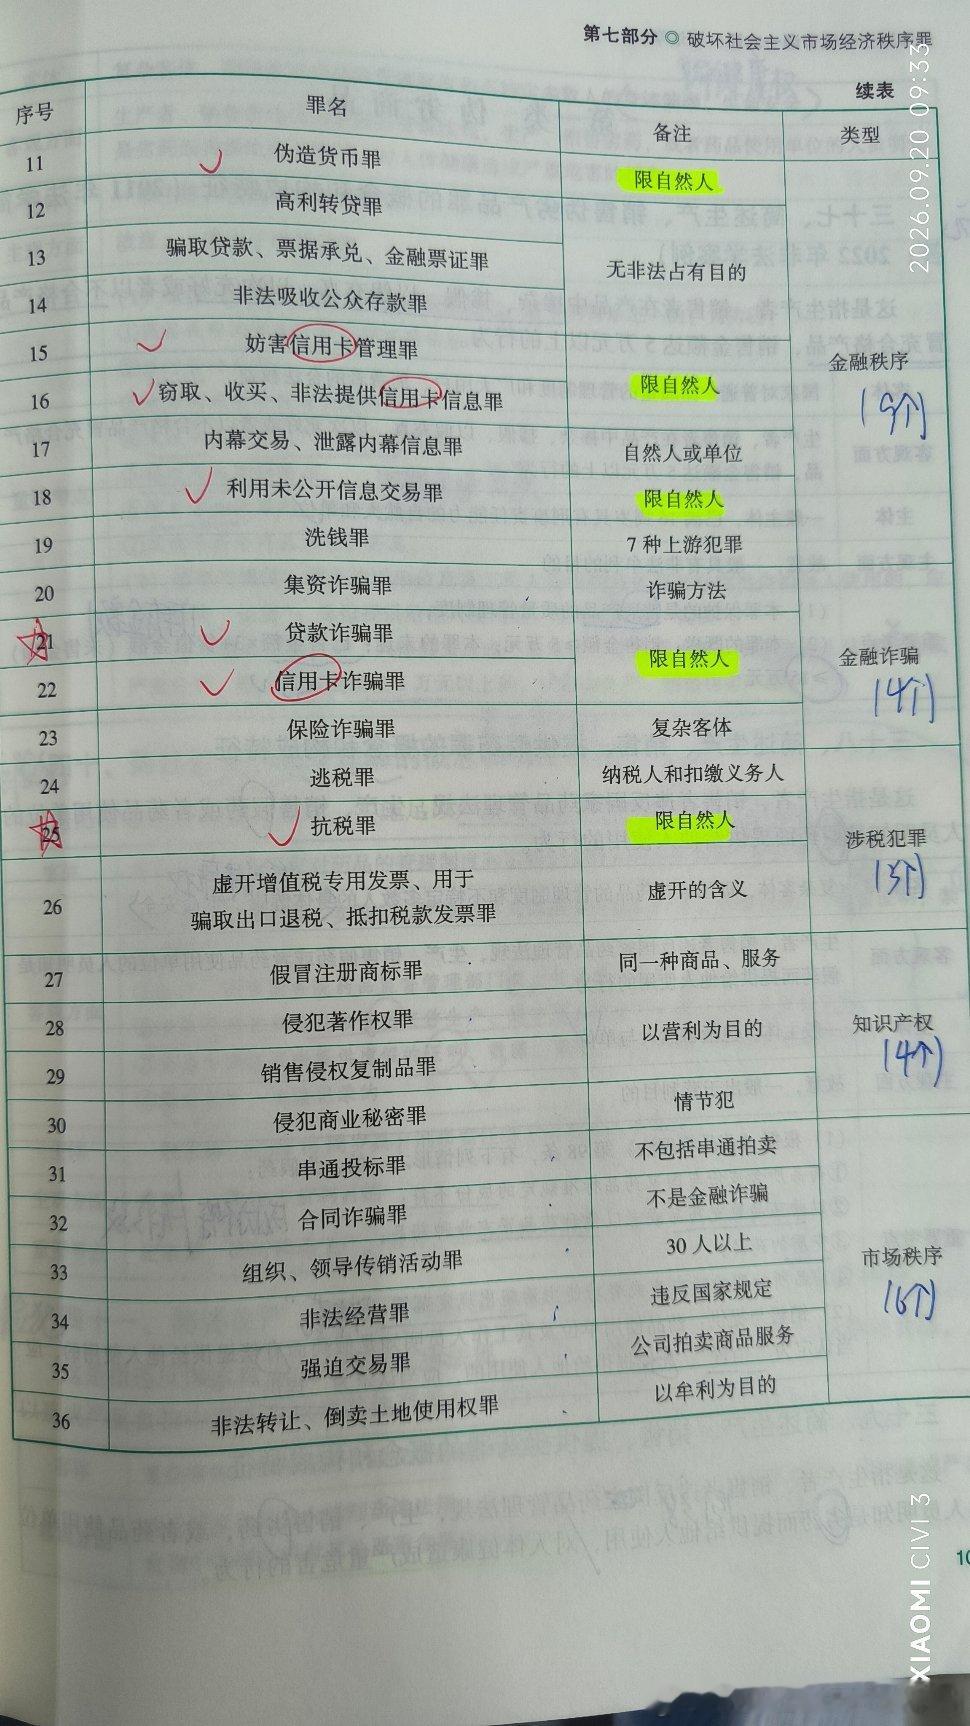 第七部分 ◎ 破坏社会主义市场经济秩序罪
续表
序号 罪名 备注 类型
11 伪造货币罪 限自然人
12 高利转贷罪
13 骗取贷款、票据承兑、金融票证罪 无非法占有目的
14 非法吸收公众存款罪
15 妨害信用卡管理罪 金融秩序
16 窃取、收买、非法提供信用卡信息罪 限自然人 (9个)
17 内幕交易、泄露内幕信息罪 自然人或单位
18 利用未公开信息交易罪 限自然人
19 洗钱罪 7种上游犯罪
20 集资诈骗罪 诈骗方法
21 贷款诈骗罪 金融诈骗
22 信用卡诈骗罪 限自然人 (4个)
23 保险诈骗罪 复杂客体
24 逃税罪 纳税人和扣缴义务人
25 抗税罪 限自然人 涉税犯罪
26 虚开增值税专用发票、用于 虚开的含义 (3个)
骗取出口退税、抵扣税款发票罪
27 假冒注册商标罪 同一种商品、服务
28 侵犯著作权罪 以营利为目的 知识产权
29 销售侵权复制品罪 (4个)
30 侵犯商业秘密罪 情节犯
31 串通投标罪 不包括串通拍卖
32 合同诈骗罪 不是金融诈骗
33 组织、领导传销活动罪 30人以上 市场秩序
34 非法经营罪 违反国家规定 (6个)
35 强迫交易罪 公司拍卖商品服务
36 非法转让、倒卖土地使用权罪 以牟利为目的
10
2026.09.20 09:33
XIAOMI CIVI 3